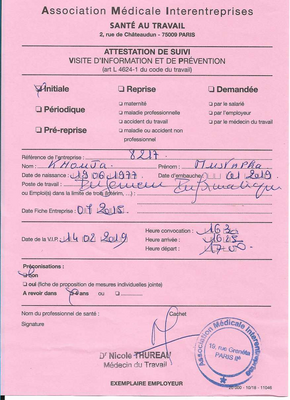 Association Médicale Interentreprises
SANTÉ AU TRAVAIL
2, rue de Châteaudun - 75009 PARIS
ATTESTATION DE SUIVI
VISITE D'INFORMATION ET DE PRÉVENTION
(art L 4624-1 du code du travail)
Initiale Reprise Demandée
maternité par le salarié
Périodique maladie professionnelle par l'employeur
accident du travail par le médecin du travail
Pré-reprise maladie ou accident non professionnel
Référence de l'entreprise : 8217
Nom : KHOUJA Prénom : MUSTAPHA
Date de naissance : 19 06 1977 Date d'embauche : 01 2019
Poste de travail : Informatique
ou Emploi(s) dans la limite de trois (intérim, ...) :
Date Fiche Entreprise : 07 2015
Heure convocation : 16 30
Date de la V.I.P. : 14 02 2019 Heure arrivée :
Heure départ : 17
Préconisations :
non
oui (fiche de proposition de mesures individuelles jointe)
A revoir dans 5 ans ou
Nom du professionnel de santé : Cachet
Signature
Dr Nicole THUREAU
Médecin du Travail
Association Médicale Interentreprises
19, rue
PARIS
EXEMPLAIRE EMPLOYEUR